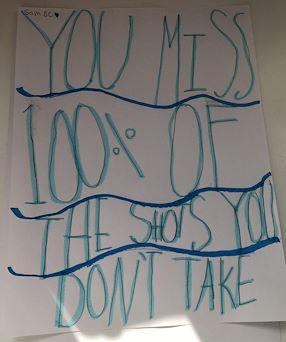 Sam SC♥
YOU MISS
100% OF
THE SHOTS YOU
DON'T TAKE